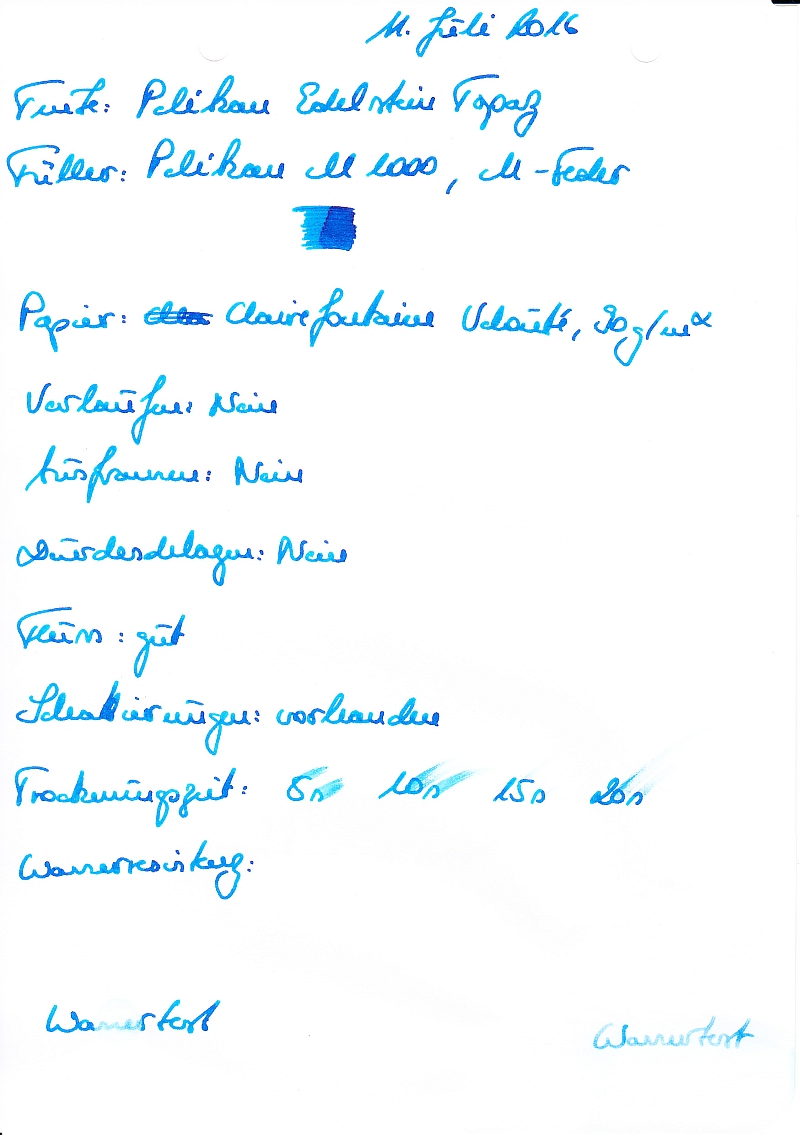 11. Juli 2016
Tinte: Pelikan Edelstein Topaz
Füller: Pelikan M 1000, M-Feder
Papier: Clairefontaine Velouté, 90 g/m²
Verlaufen: Nein
Ausfransen: Nein
Durchschlagen: Nein
Fluss: gut
Schattierungen: vorhanden
Trocknungszeit: 5s 10s 15s 20s
Wasserresistenz:
Wassertest
Wassertest